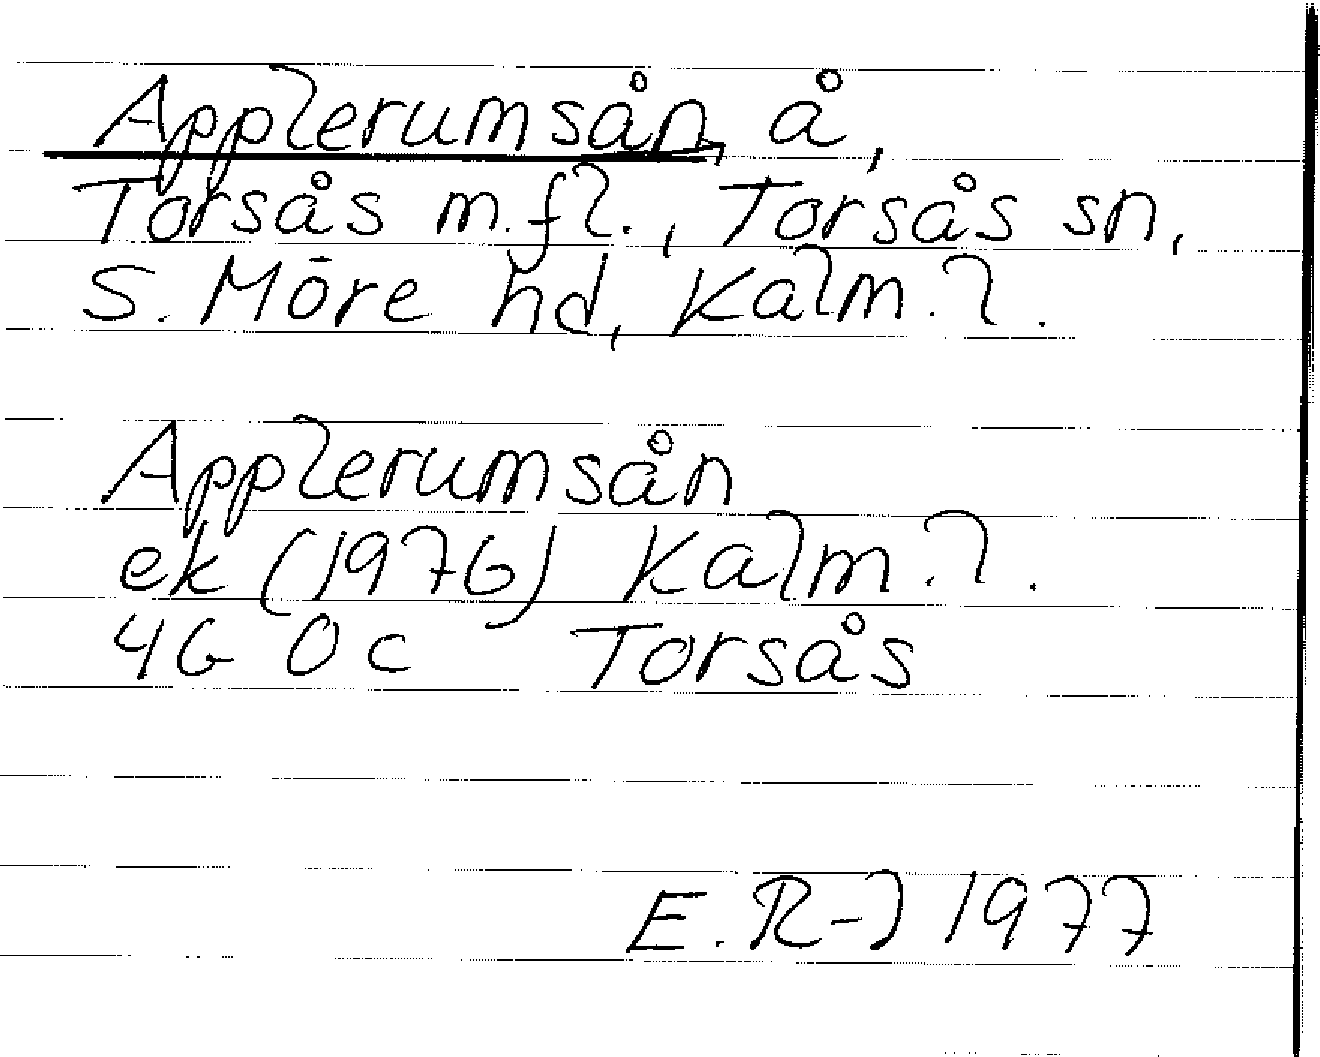 Applerumsån, å,
Torsås m.fl., Torsås sn,
S. Möre hd, Kalm. l.
Applerumsån
ek (1976) Kalm. l.
4G 0c Torsås
E. R-J 1977